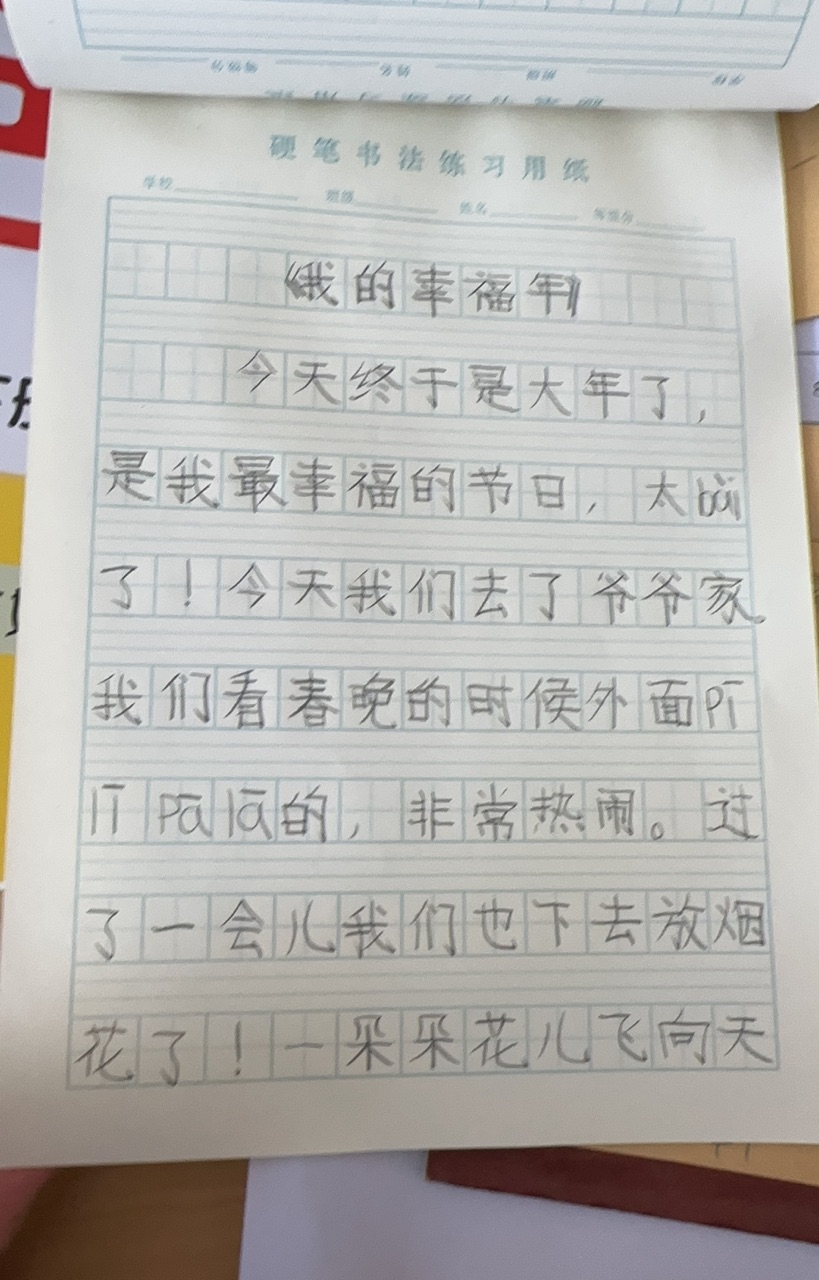 硬笔书法练习用纸
学校 班级 姓名 等级分
《我的幸福年》
今天终于是大年了，
是我最幸福的节日，太bàng
了！今天我们去了爷爷家
我们看春晚的时候外面pī
lī pā lā的，非常热闹。过
了一会儿我们也下去放烟
花了！一朵朵花儿飞向天